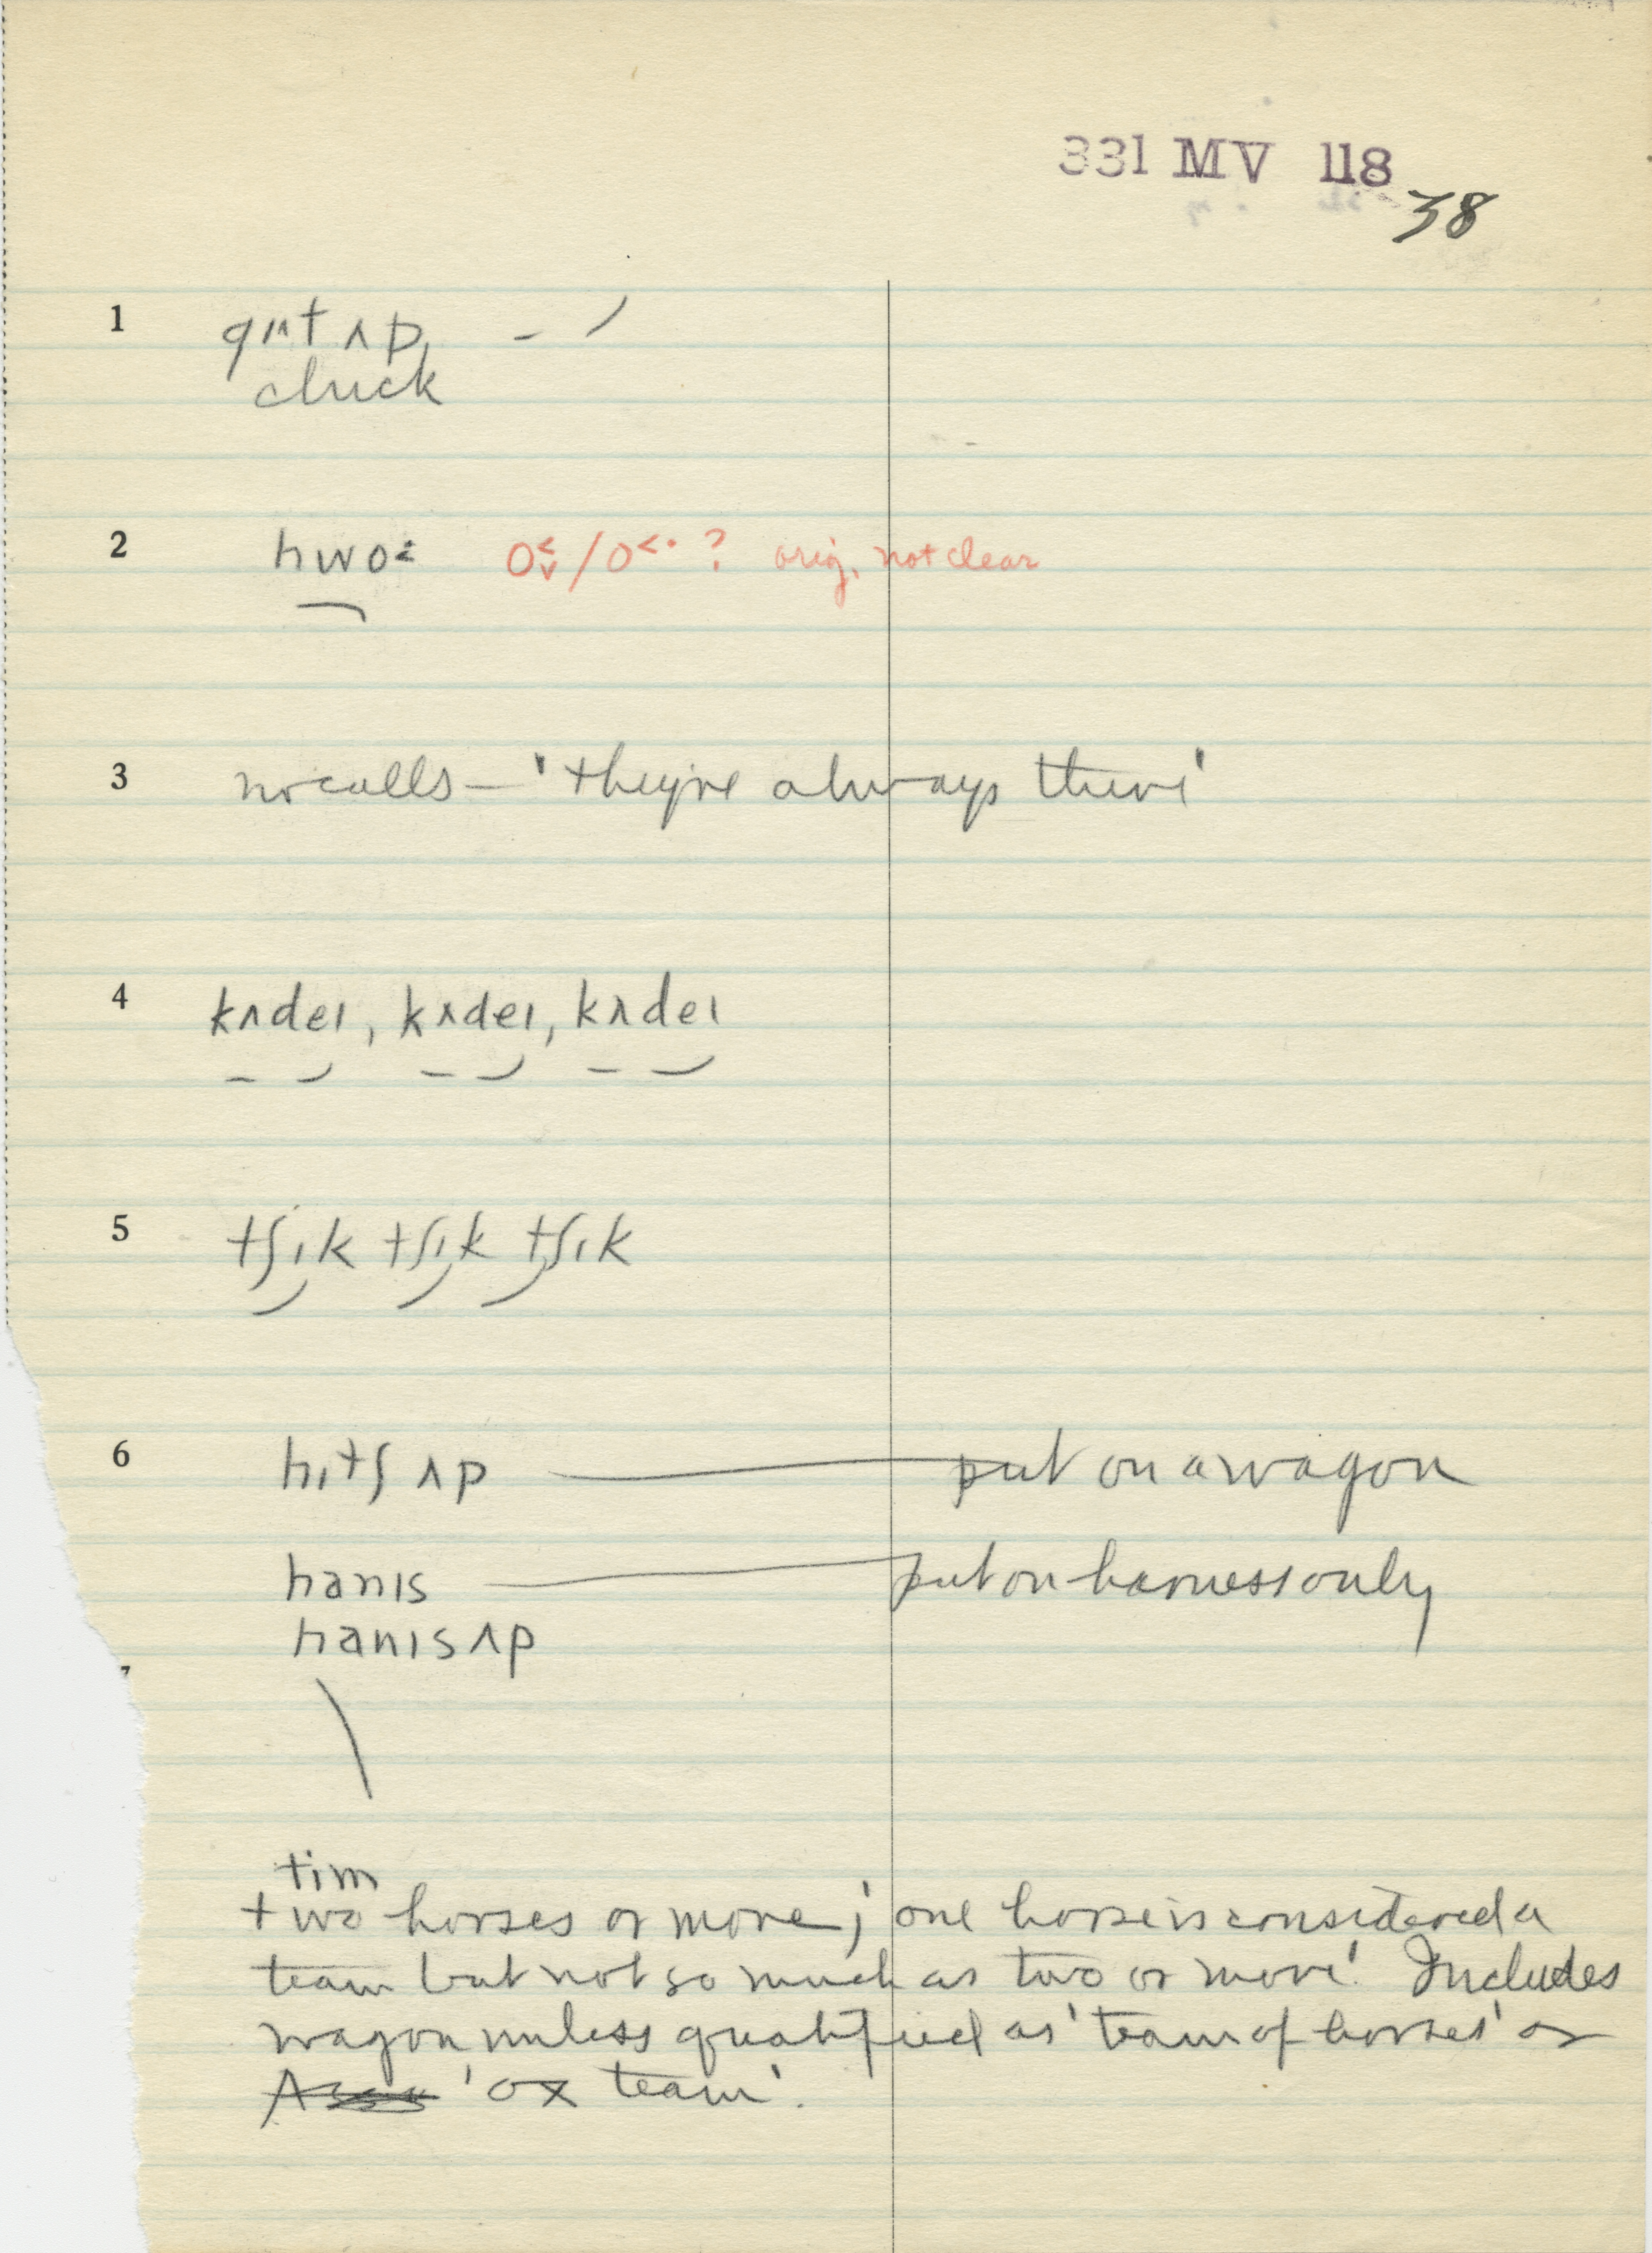 331 MV 118
38
1 gɪt ʌp, – ⸝
cluck
2 hwo: o˂˅/o˂· ? orig. not clear
3 no calls – 'they're always there'
4 kʌdeɪ, kʌdeɪ, kʌdeɪ
5 tʃɪk tʃɪk tʃɪk
6 hɪtʃ ʌp — put on a wagon
hanɪs — put on harness only
hanɪs ʌp
7
tim
two horses or more; 'one horse is considered a
team but not so much as two or more'. Includes
wagon unless qualified as 'team of horses' or
'ox team'.